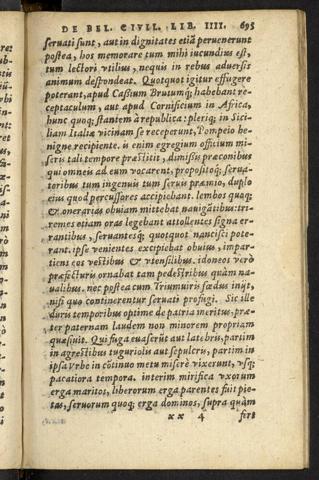 DE BEL. CIVIL. LIB. IIII. 695
seruati sunt, aut in dignitates etiã peruenerunt
postea, hos memorare tum mihi iucundius est,
tum lectori vtilius, nequis in rebus aduersis
animum despondeat. Quotquot igitur effugere
poterant, apud Cassium Brutumq; habebant re-
ceptaculum, aut apud Cornificium in Africa,
hunc quoq; stantem à republica: pleriq; in Sici-
liam Italiæ vicinam se receperunt, Pompeio be-
nigne recipiente. is enim egregium officium mi-
seris tali tempore præstitit, dimissis præconibus
qui omneis ad eum vocarent, propositoq; serua-
toribus tum ingenuis tum seruis præmio, duplo
eius quod percussores accipiebant. lembos quoq;
& onerarias obuiam mittebat nauigãtibus: tri-
remes etiam oras legebant attollentes signa er-
rantibus, seruantesq; quotquot nancisci pote-
rant. ipse venientes excipiebat obuius, impar-
tiens eos vestibus & vtensilibus. idoneis verò
præfecturis ornabat tam pedestribus quàm na-
ualibus. nec postea cum Triumuiris fœdus inijt,
nisi quo continerentur seruati profugi. Sic ille
duris temporibus optime de patria meritus, præ-
ter paternam laudem non minorem propriam
quæsiuit. Qui fuga euaserũt aut latebris, partim
in agrestibus tuguriolis aut sepulcris, partim in
ipsa vrbe in cõtinuo metu miserè vixerunt, vsq;
pacatiora tempora. interim mirifica vxorum
erga maritos, liberorum erga parentes fuit pie-
tas, seruorum quoq; erga dominos, supra quàm
xx 4 fert